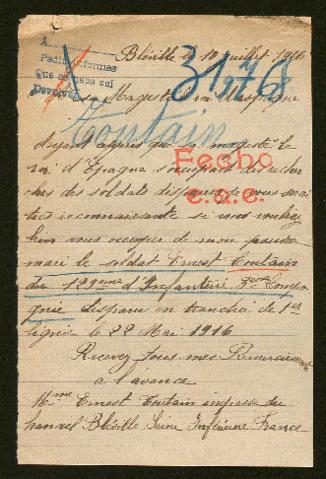 Bléville le 10 juillet 1916
A
Pedir informes
que se debe
Devolver
31278
sa Magesté le roi d'Espagne
Toutain
Ayant appris que sa magesté le
roi d'Espagne s'occupait des recher
ches des soldats disparus je vous serai
très reconnaissante si vous vouliez
bien vous occuper de mon pauvre
mari le soldat Ernest Toutain
du 129eme d'Infanterie 3eme Compa
gnie disparu en tranchée de 1er
ligne le 22 Mai 1916
Fecho
c.a.c.
Recevez tous mes Remerciements
a l'avance
Mme Ernest Toutain impasse du
Bléville Seine Inférieure France